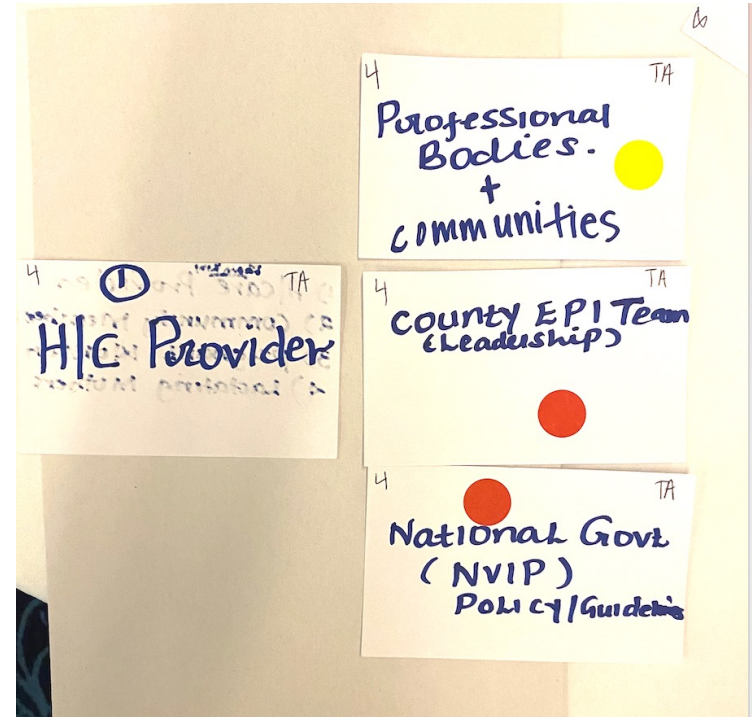 4 TA
Professional
Bodies.
+
communities
4 ① TA
H/C Provider
4 TA
County EPI Team
(Leadership)
4 TA
National Govt
(NVIP)
Policy/Guidelines